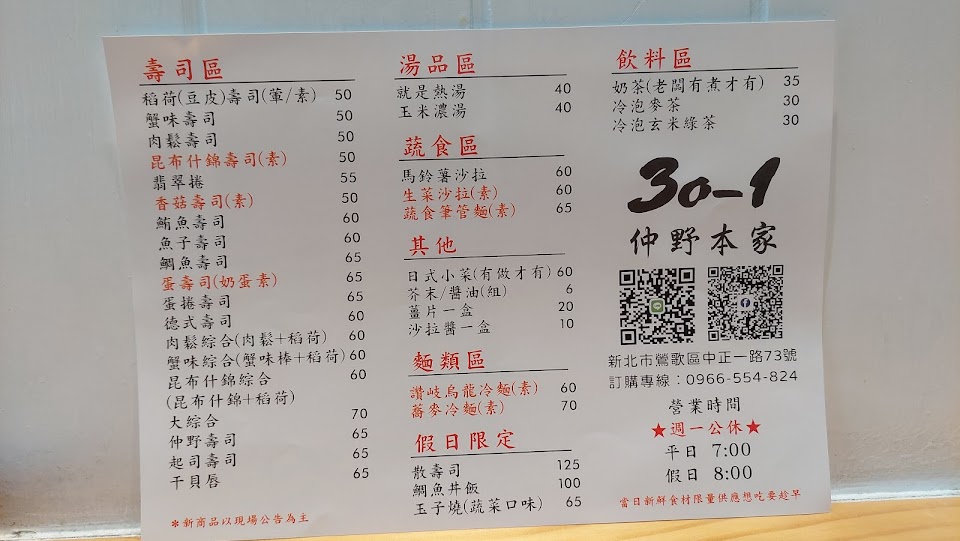 壽司區
稻荷(豆皮)壽司(葷/素) 50
蟹味壽司 50
肉鬆壽司 50
昆布什錦壽司(素) 50
翡翠捲 55
香菇壽司(素) 50
鮪魚壽司 60
魚子壽司 60
鯛魚壽司 65
蛋壽司(奶蛋素) 65
蛋捲壽司 65
德式壽司 60
肉鬆綜合(肉鬆+稻荷) 60
蟹味綜合(蟹味棒+稻荷) 60
昆布什錦綜合 60
(昆布什錦+稻荷)
大綜合 70
仲野壽司 65
起司壽司 65
干貝唇 65
*新商品以現場公告為主
湯品區
就是熱湯 40
玉米濃湯 40
蔬食區
馬鈴薯沙拉 60
生菜沙拉(素) 60
蔬食筆管麵(素) 65
其他
日式小菜(有做才有) 60
芥末/醬油(組) 6
薑片一盒 20
沙拉醬一盒 10
麵類區
讚岐烏龍冷麵(素) 60
蕎麥冷麵(素) 70
假日限定
散壽司 125
鯛魚丼飯 100
玉子燒(蔬菜口味) 65
飲料區
奶茶(老闆有煮才有) 35
冷泡麥茶 30
冷泡玄米綠茶 30
30-1
仲野本家
新北市鶯歌區中正一路73號
訂購專線：0966-554-824
營業時間
★週一公休★
平日 7:00
假日 8:00
當日新鮮食材限量供應想吃要趁早